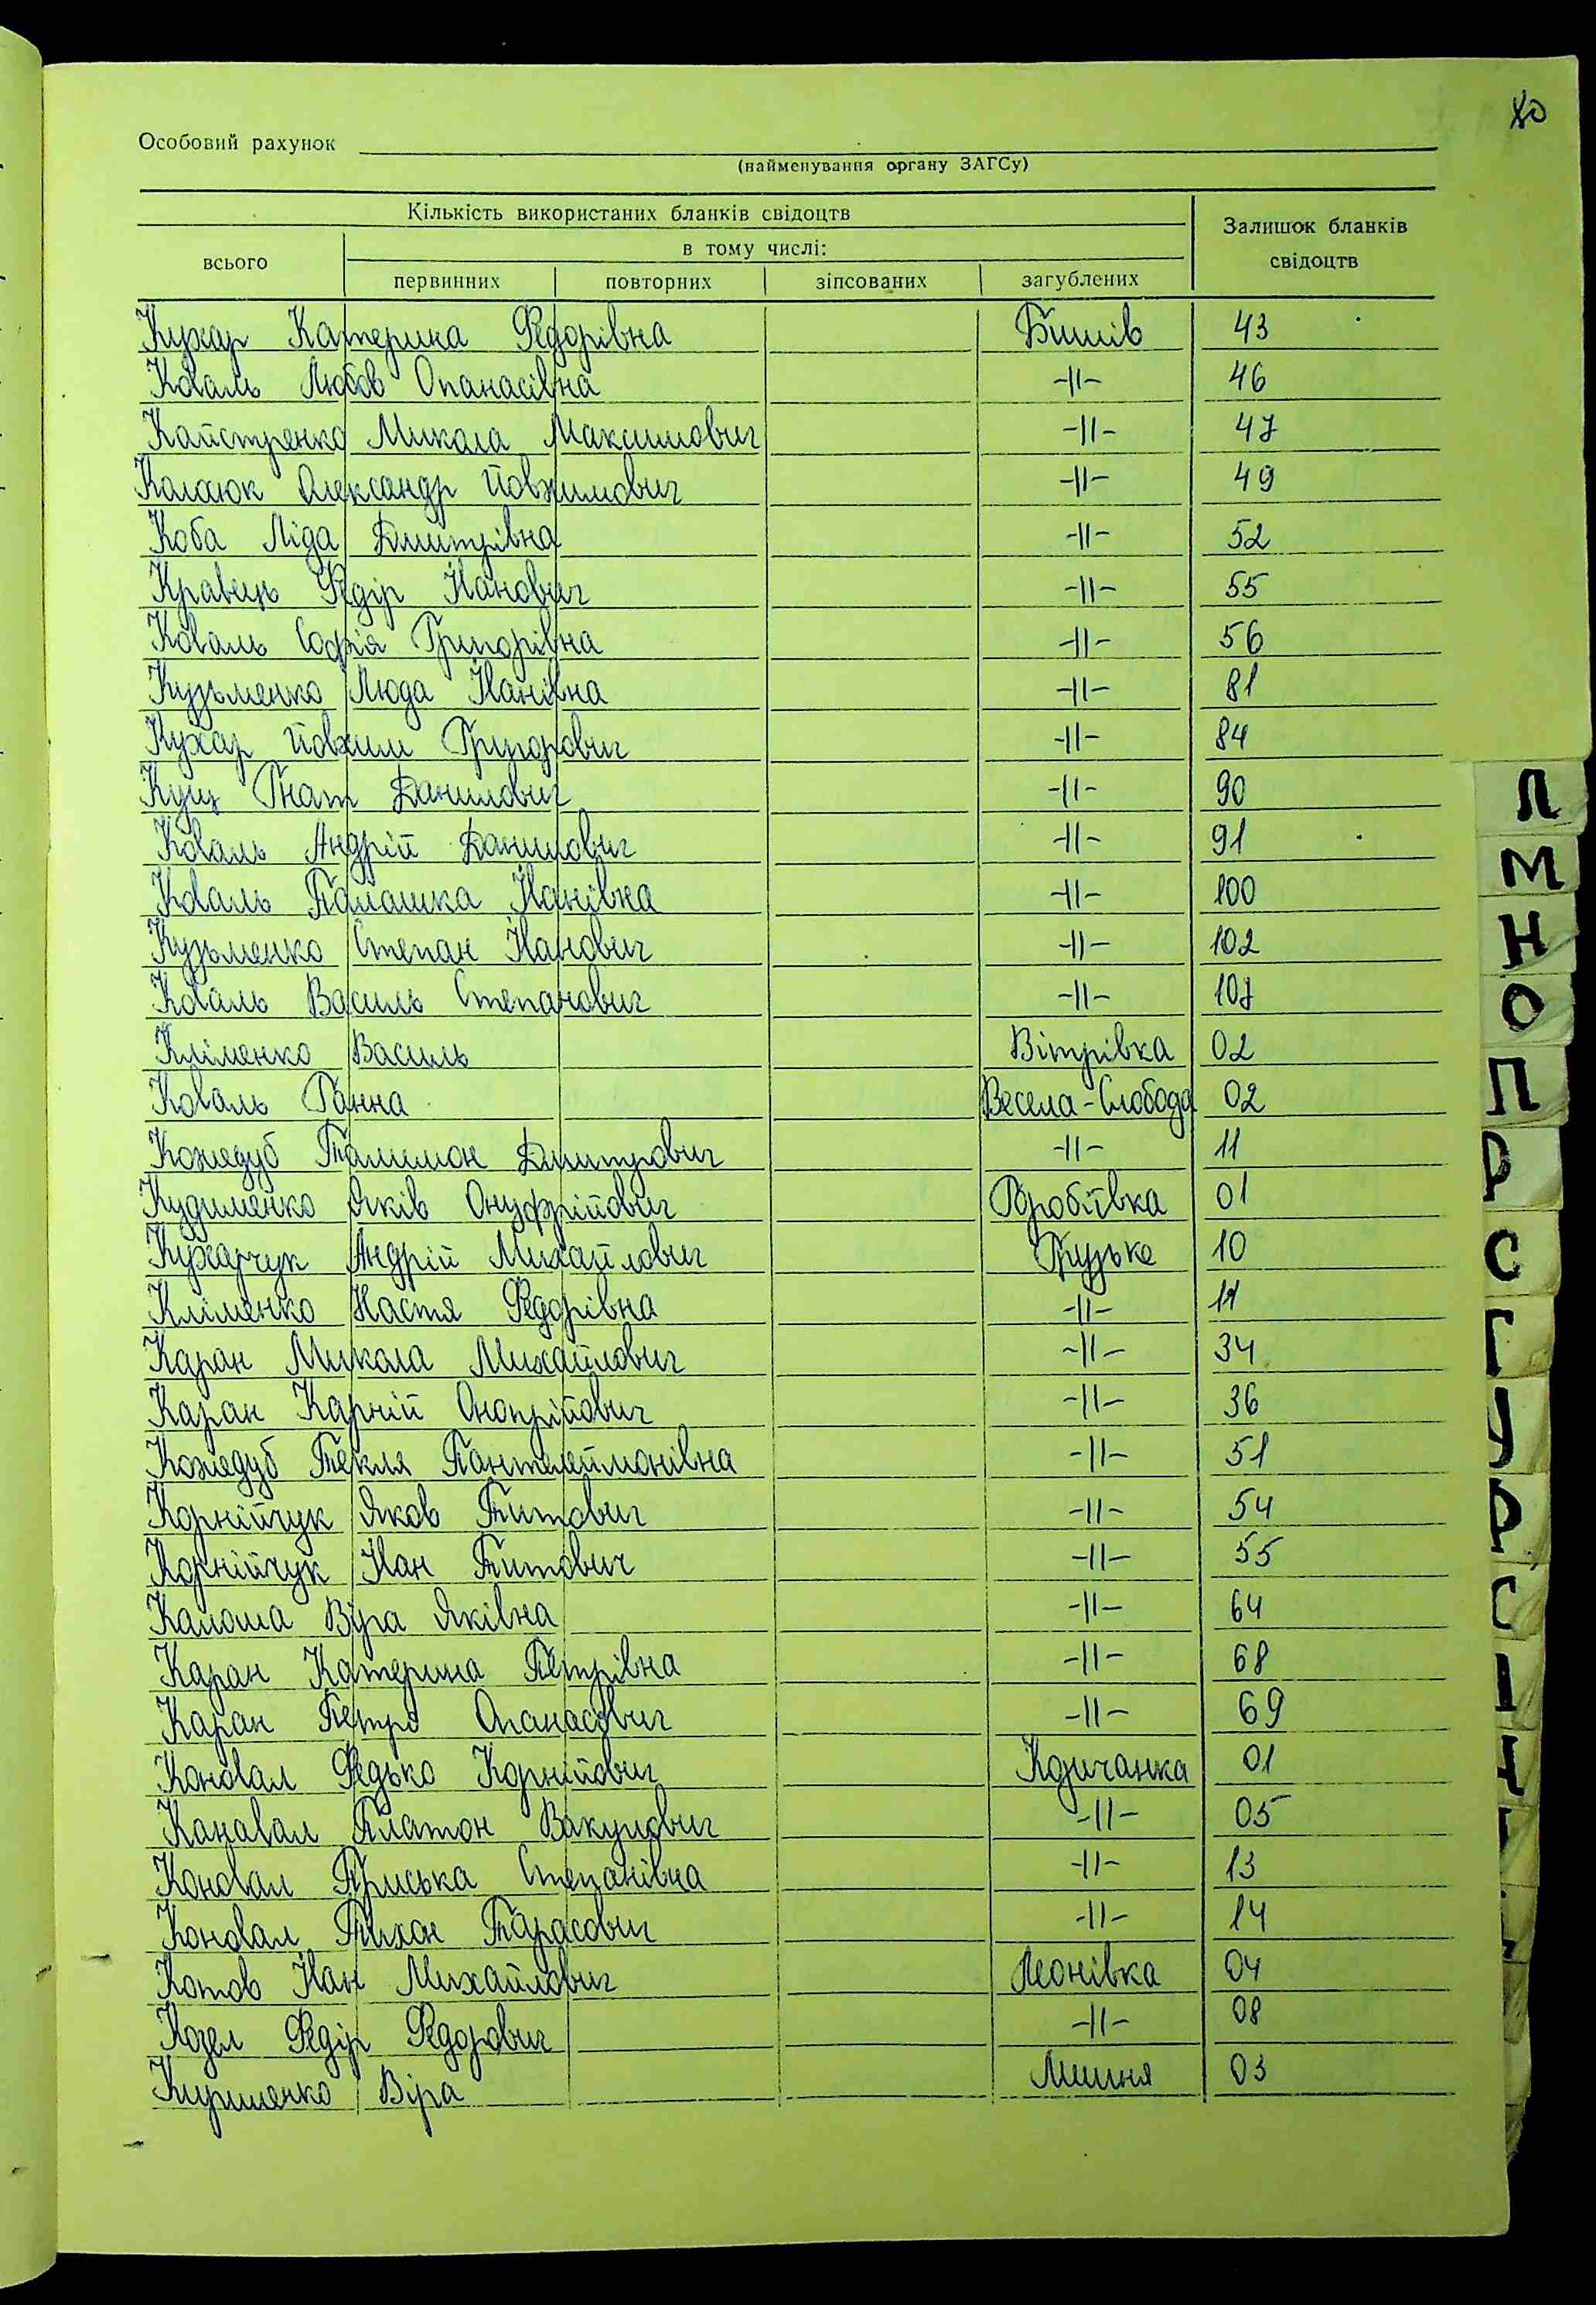 80
Особовий рахунок
(найменування органу ЗАГСу)
Кількість використаних бланків свідоцтв
Залишок бланків свідоцтв
всього
в тому числі:
первинних повторних зіпсованих загублених
Кухар Катерина Федорівна Бишів 43
Коваль Любов Опанасівна -||- 46
Кайстренко Микола Максимович -||- 47
Колсюк Олександр Йовхимович -||- 49
Коба Ліда Дмитрівна -||- 52
Кравець Федір Іванович -||- 55
Коваль Софія Григорівна -||- 56
Кузьменко Люда Іванівна -||- 81
Кухар Йовхим Григорович -||- 84
Кущ Гнат Данилович -||- 90
Коваль Андрій Данилович -||- 91
Коваль Палашка Іванівна -||- 100
Кузьменко Степан Іванович -||- 102
Коваль Василь Степанович -||- 107
Кліменко Василь Вітрівка 02
Коваль Ганна Весела-Слобода 02
Кожедуб Палимон Дмитрович -||- 11
Кудименко Яків Онуфрійович Воробіївка 01
Кухарчук Андрій Михайлович Грузьке 10
Кліменко Настя Федорівна -||- 11
Каран Микола Михайлович -||- 34
Каран Карній Онопрійович -||- 36
Кожедуб Текля Пантелеймонівна -||- 51
Корнійчук Яков Титович -||- 54
Корнійчук Іван Титович -||- 55
Калоша Віра Яківна -||- 64
Каран Катерина Петрівна -||- 68
Каран Петро Опанасович -||- 69
Коновал Федько Корнійович Козичанка 01
Кановал Платон Вакулович -||- 05
Коновал Приська Степанівна -||- 13
Коновал Тихон Тарасович -||- 14
Котов Іван Михайлович Леонівка 04
Козел Федір Федорович -||- 08
Куришенко Віра Лишня 03
Л
М
Н
О
П
Р
С